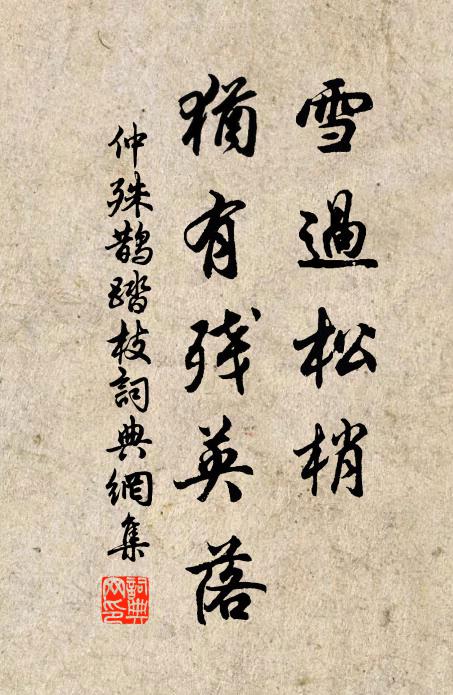 雪過松梢
猶有残英落
仲殊鵲踏枝詞典網集
詞典網印